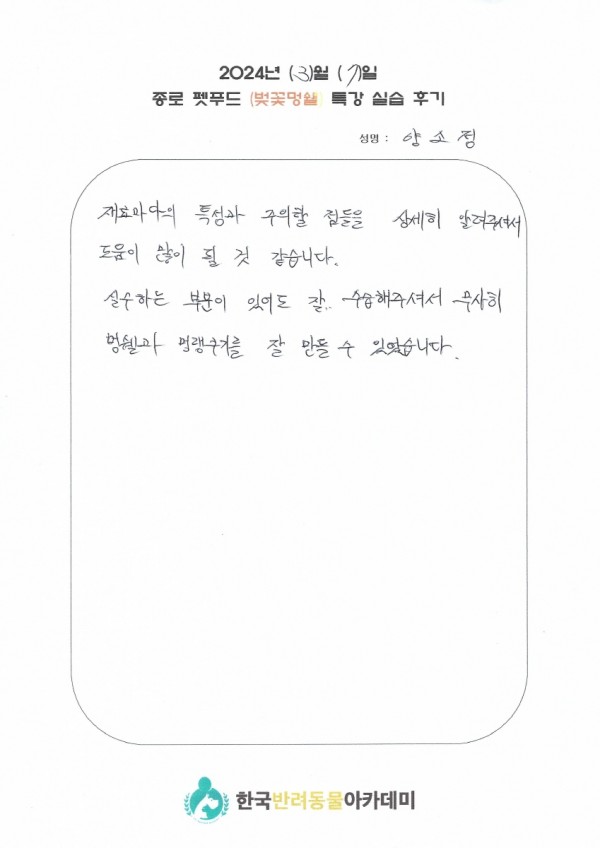 2024년 (3)월 (7)일
종로 펫푸드 (벚꽃멍쉘) 특강 실습 후기
성명 : 양소정
재료마다의 특성과 주의할 점들을 상세히 알려주셔서
도움이 많이 될 것 같습니다.
실수하는 부분이 있어도 잘.. 수습해주셔서 무사히
멍쉘과 멍랭쿠키를 잘 만들 수 있었습니다.
한국반려동물아카데미